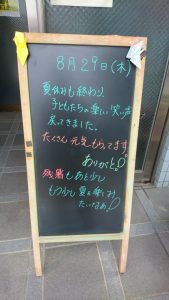 8月29日(木)
夏休みも終わり、
子どもたちの楽しい笑い声
戻ってきました。
たくさん元気もらってます。
ありがと!
残暑もあと少し
もう少し夏を楽しみ
たいなぁ!